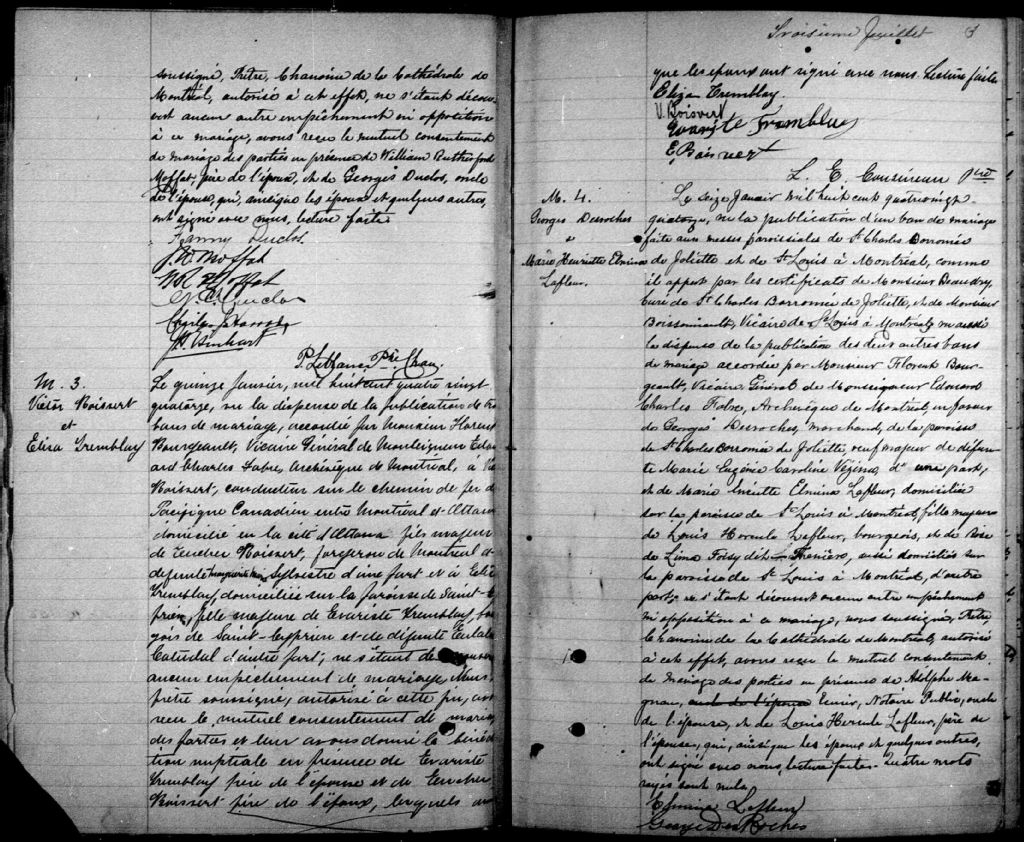 soussigné, Prêtre, Chanoine de la Cathédrale de
Montréal, autorisé à cet effet, ne s'étant décou-
vert aucun autre empêchement ni opposition
à ce mariage, avons reçu le mutuel consentement
de mariage des parties en présence de William Rutherford
Moffat, père de l'époux, et de Georges Duclos, oncle
de l'épouse, qui, ainsi que les époux et quelques autres,
ont signé avec nous, lecture faite.
Fanny Duclos.
J. H. Moffat
W R Moffat
G Duclos
P. Leblanc Ptre Chan.
M. 3.
Victor Boissert
et
Eliza Tremblay
Le quinze Janvier, mil huit cent quatre vingt
quatorze, vu la dispense de la publication de
bans de mariage, accordée par Monsieur Florent
Bourgeault, Vicaire Général de Monseigneur Edou
ard Charles Fabre, Archevêque de Montréal, à Vic
Boissert, conducteur sur le chemin de fer du
Pacifique Canadien entre Montréal et Ottawa
domicilié en la cité d'Ottawa fils majeur
de Boissert, forgeron de Montréal et
défunte Marguerite Sylvestre d'une part et à Eliz
Tremblay domiciliée sur la paroisse de Saint-Cy
prien, fille majeure de Evariste Tremblay, bour
geois de Saint-Cyprien et de défunte Eulalie
d'autre part; ne s'étant découvert
aucun empêchement de mariage, Nous
prêtre soussigné, autorisé à cette fin, avons
reçu le mutuel consentement de mariage
des parties et leur avons donné la bénédic
tion nuptiale en présence de Evariste
Tremblay père de l'épouse et de
Boissert père de l'époux, lesquels
Troisième feuillet 3
que les époux ont signé avec nous. Lecture faite
Eliza Tremblay.
V. Boisvert
Evariste Tremblay
E. Boisvert
L. E. Cousineau Ptre
M. 4.
Georges Desroches
&
Marie Henriette Elmina
Lafleur.
Le seize Janvier mil huit cent quatrevingt
quatorze, vu la publication d'un ban de mariage
faite aux messes paroissiales de St Charles Borromée
de Joliette et de St Louis à Montréal, comme
il appert par les certificats de Monsieur Beaudry,
Curé de St Charles Borromée de Joliette, et de Monsieur
Boissonnault, Vicaire de St Louis à Montréal; vu aussi
la dispense de la publication des deux autres bans
de mariage accordée par Monsieur Florent Bour-
geault, Vicaire Général de Monseigneur Edouard
Charles Fabre, Archevêque de Montréal, en faveur
de Georges Desroches, marchand, de la paroisse
de St Charles Borromée de Joliette, veuf majeur de défun-
te Marie Eugénie Caroline Vézina, d'une part,
et de Marie Elmina Lafleur, domiciliée
sur la paroisse de St Louis à Montréal, fille majeure
de Louis Hercule Lafleur, bourgeois, et de Rose
de Lima Foisy dit Frenière, aussi domiciliés sur
la paroisse de St Louis à Montréal, d'autre
part; ne s'étant découvert aucun autre empêchement
ni opposition à ce mariage, nous soussigné, Prêtre,
Chanoine de la Cathédrale de Montréal, autorisé
à cet effet, avons reçu le mutuel consentement
de mariage des parties en présence de Adolphe Ma-
gnan, oncle de l'épouse Notaire Public, oncle
de l'épouse, et de Louis Hercule Lafleur, père de
l'épouse, qui, ainsi que les époux et quelques autres,
ont signé avec nous, lecture faite. Quatre mots
rayés sont nuls.
Elmina Lafleur
George DesRoches